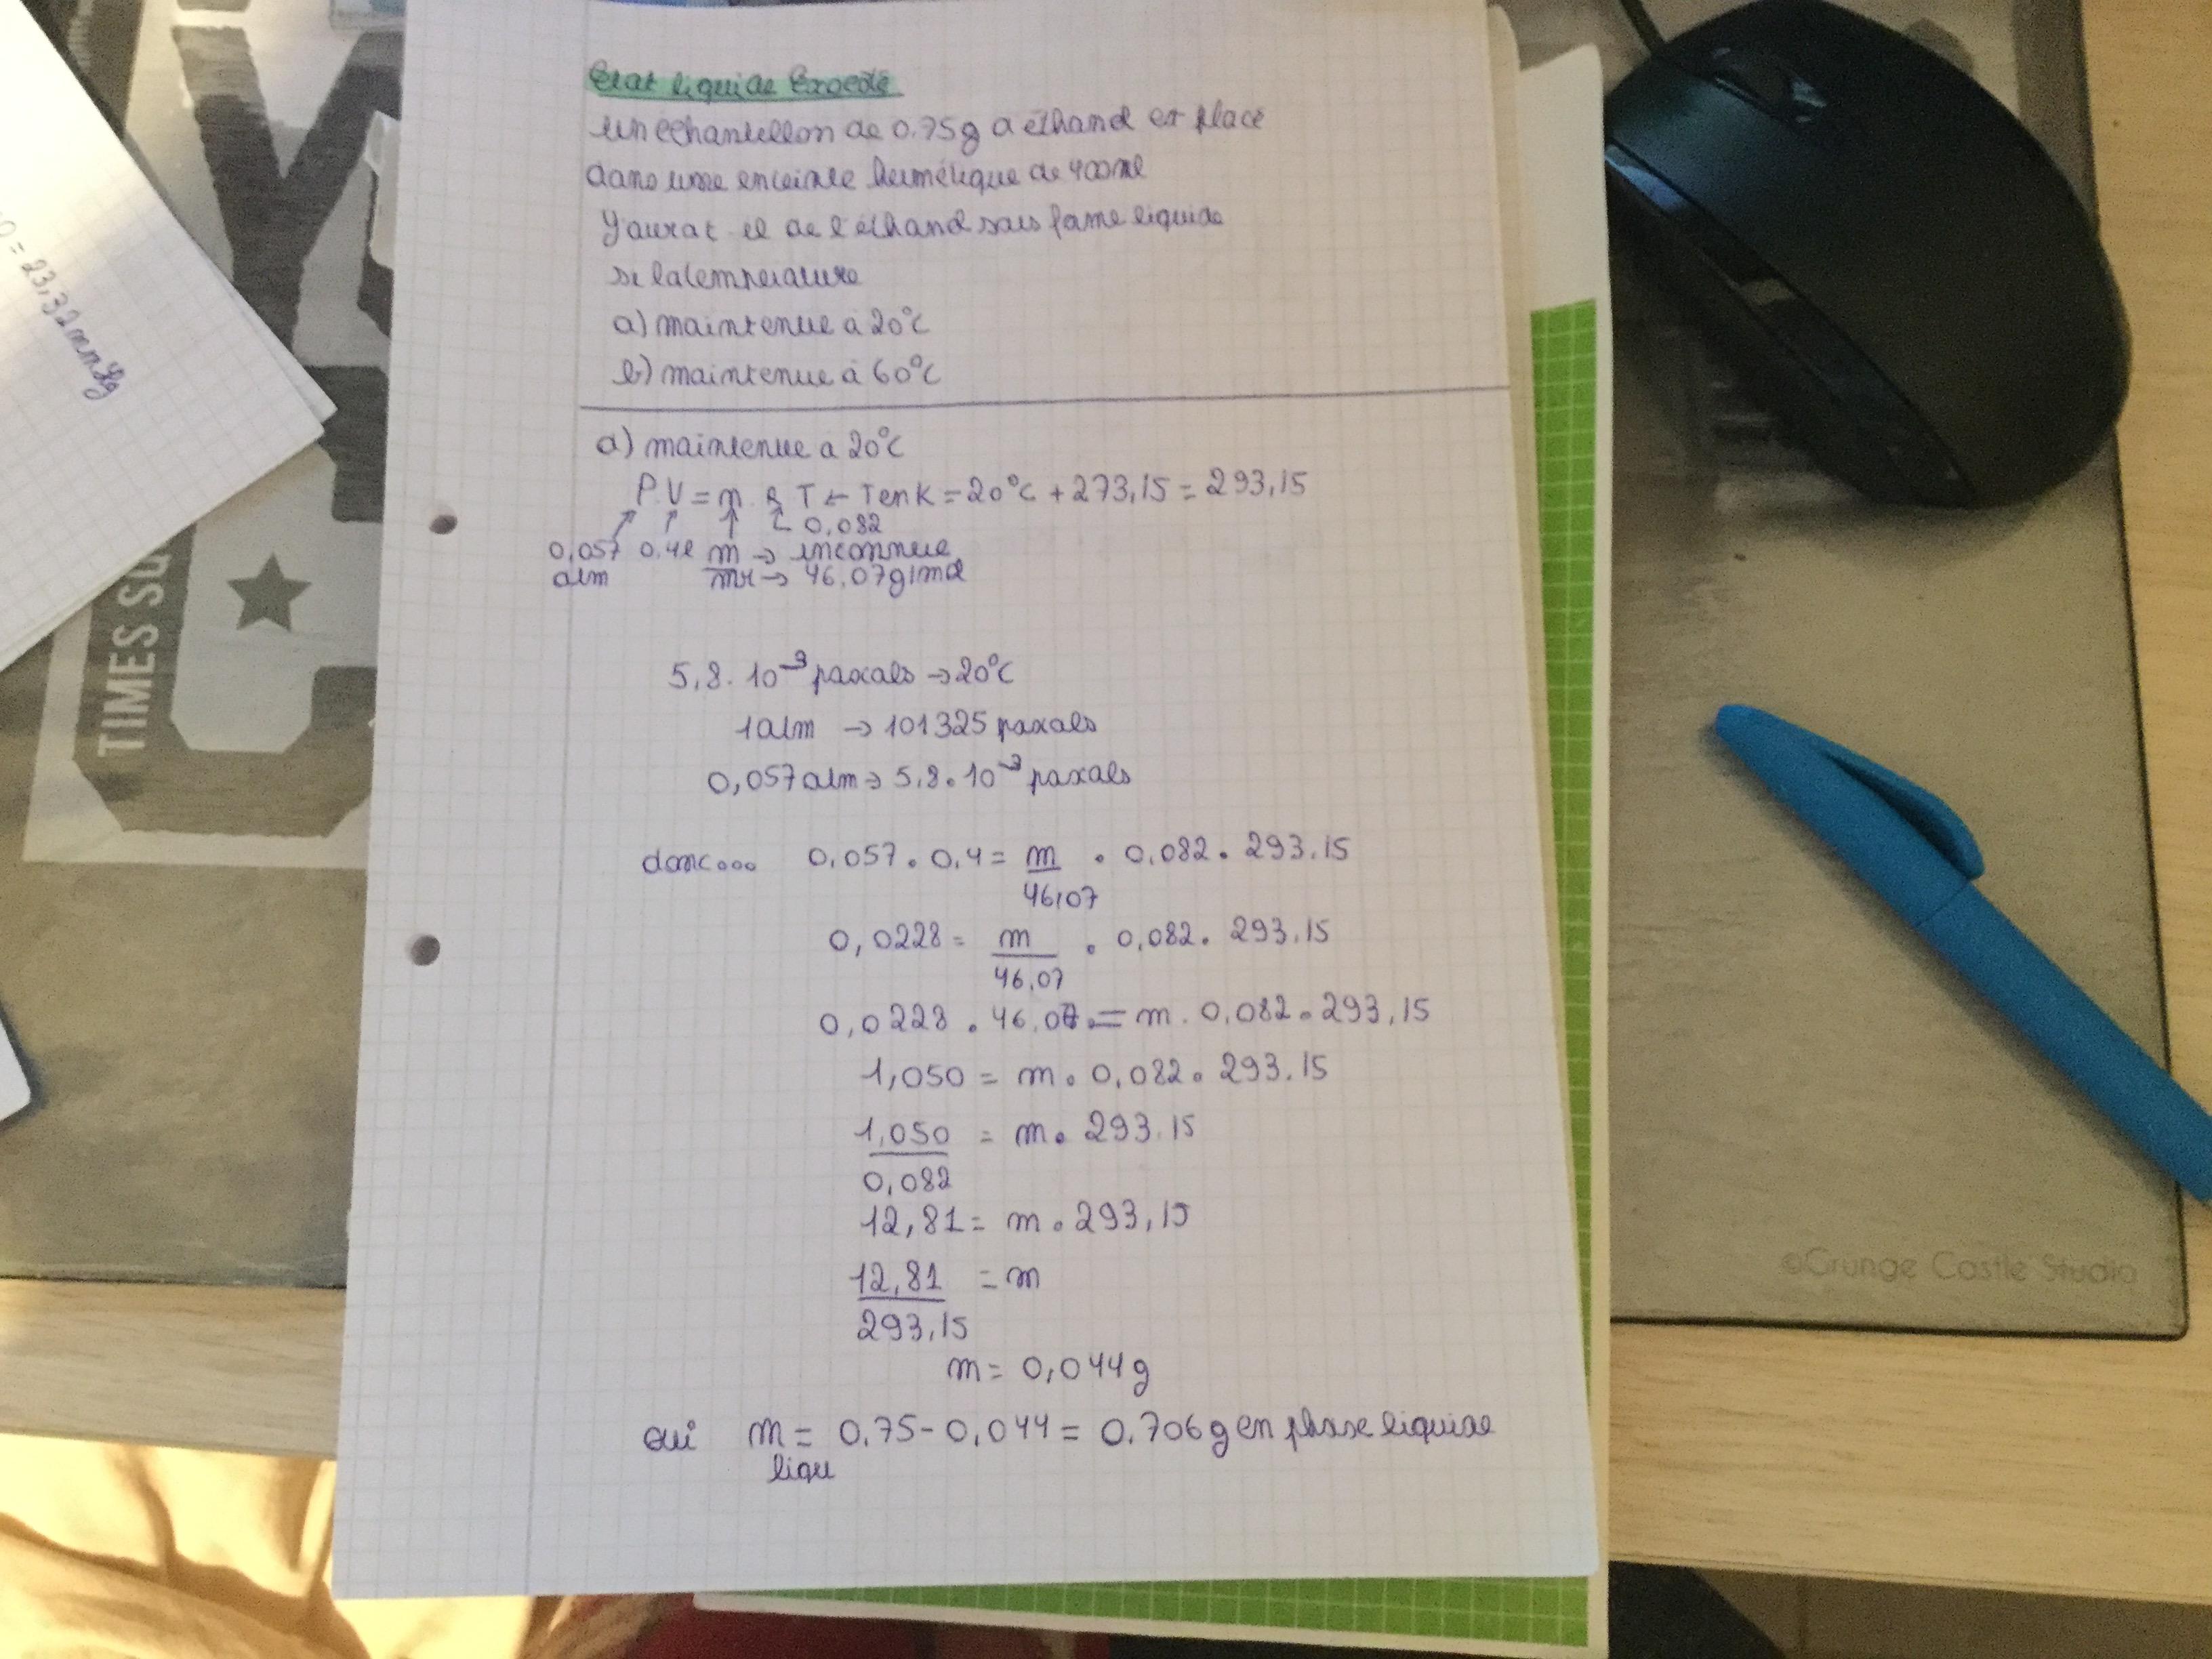 0 = 23,32mmHg
TIMES SQ
Etat liquide Exocode
un echantellon de 0.75g d'éthanol est placé
dans une enceinte hermétique de 400ml
Y'aurat-il de l'éthanol sous forme liquide
si la température
a) maintenue à 20°C
b) maintenue à 60°C
a) maintenue a 20°C
P.V = n . R T ← T en K = 20°C + 273,15 = 293,15
0,082
0,057 0,4l m → inconnue
atm mr → 46,07g/mol
5,8.10⁻³ paxals → 20°C
1atm → 101325 paxals
0,057atm → 5,8.10⁻³ paxals
donc... 0,057 . 0,4 = m . 0,082 . 293.15
46,07
0,0228 = m . 0,082. 293.15
46,07
0,0228 . 46,07 = m . 0,082.293,15
1,050 = m . 0,082. 293.15
1,050 = m . 293.15
0,082
12,81 = m . 293,15
12,81 = m
293,15
m = 0,044g
oui m = 0,75 - 0,044 = 0.706g en phase liquide
liqu
©Grunge Castle Studio